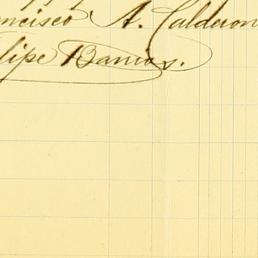 ncisco A. Calderon
lipe Barrios.